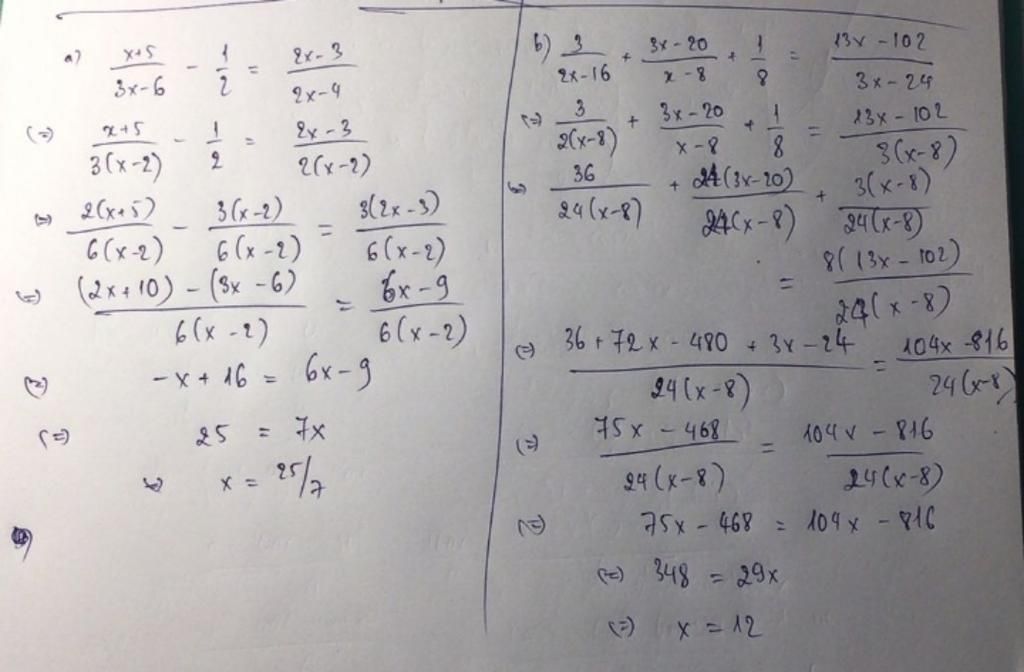 a) (x+5)/(3x-6) - 1/2 = (2x-3)/(2x-4)
(=) (x+5)/(3(x-2)) - 1/2 = (2x-3)/(2(x-2))
(=) 2(x+5)/(6(x-2)) - 3(x-2)/(6(x-2)) = 3(2x-3)/(6(x-2))
(=) ((2x+10) - (3x-6))/(6(x-2)) = (6x-9)/(6(x-2))
(=) -x+16 = 6x-9
(=) 25 = 7x
(=) x = 25/7
b) 3/(2x-16) + (3x-20)/(x-8) + 1/8 = (13x-102)/(3x-24)
(=) 3/(2(x-8)) + (3x-20)/(x-8) + 1/8 = (13x-102)/(3(x-8))
(=) 36/(24(x-8)) + 24(3x-20)/(24(x-8)) + 3(x-8)/(24(x-8))
= 8(13x-102)/(24(x-8))
(=) (36+72x-480+3x-24)/(24(x-8)) = (104x-816)/(24(x-8)
(=) (75x-468)/(24(x-8)) = (104x-816)/(24(x-8))
(=) 75x-468 = 104x-816
(=) 348 = 29x
(=) x = 12